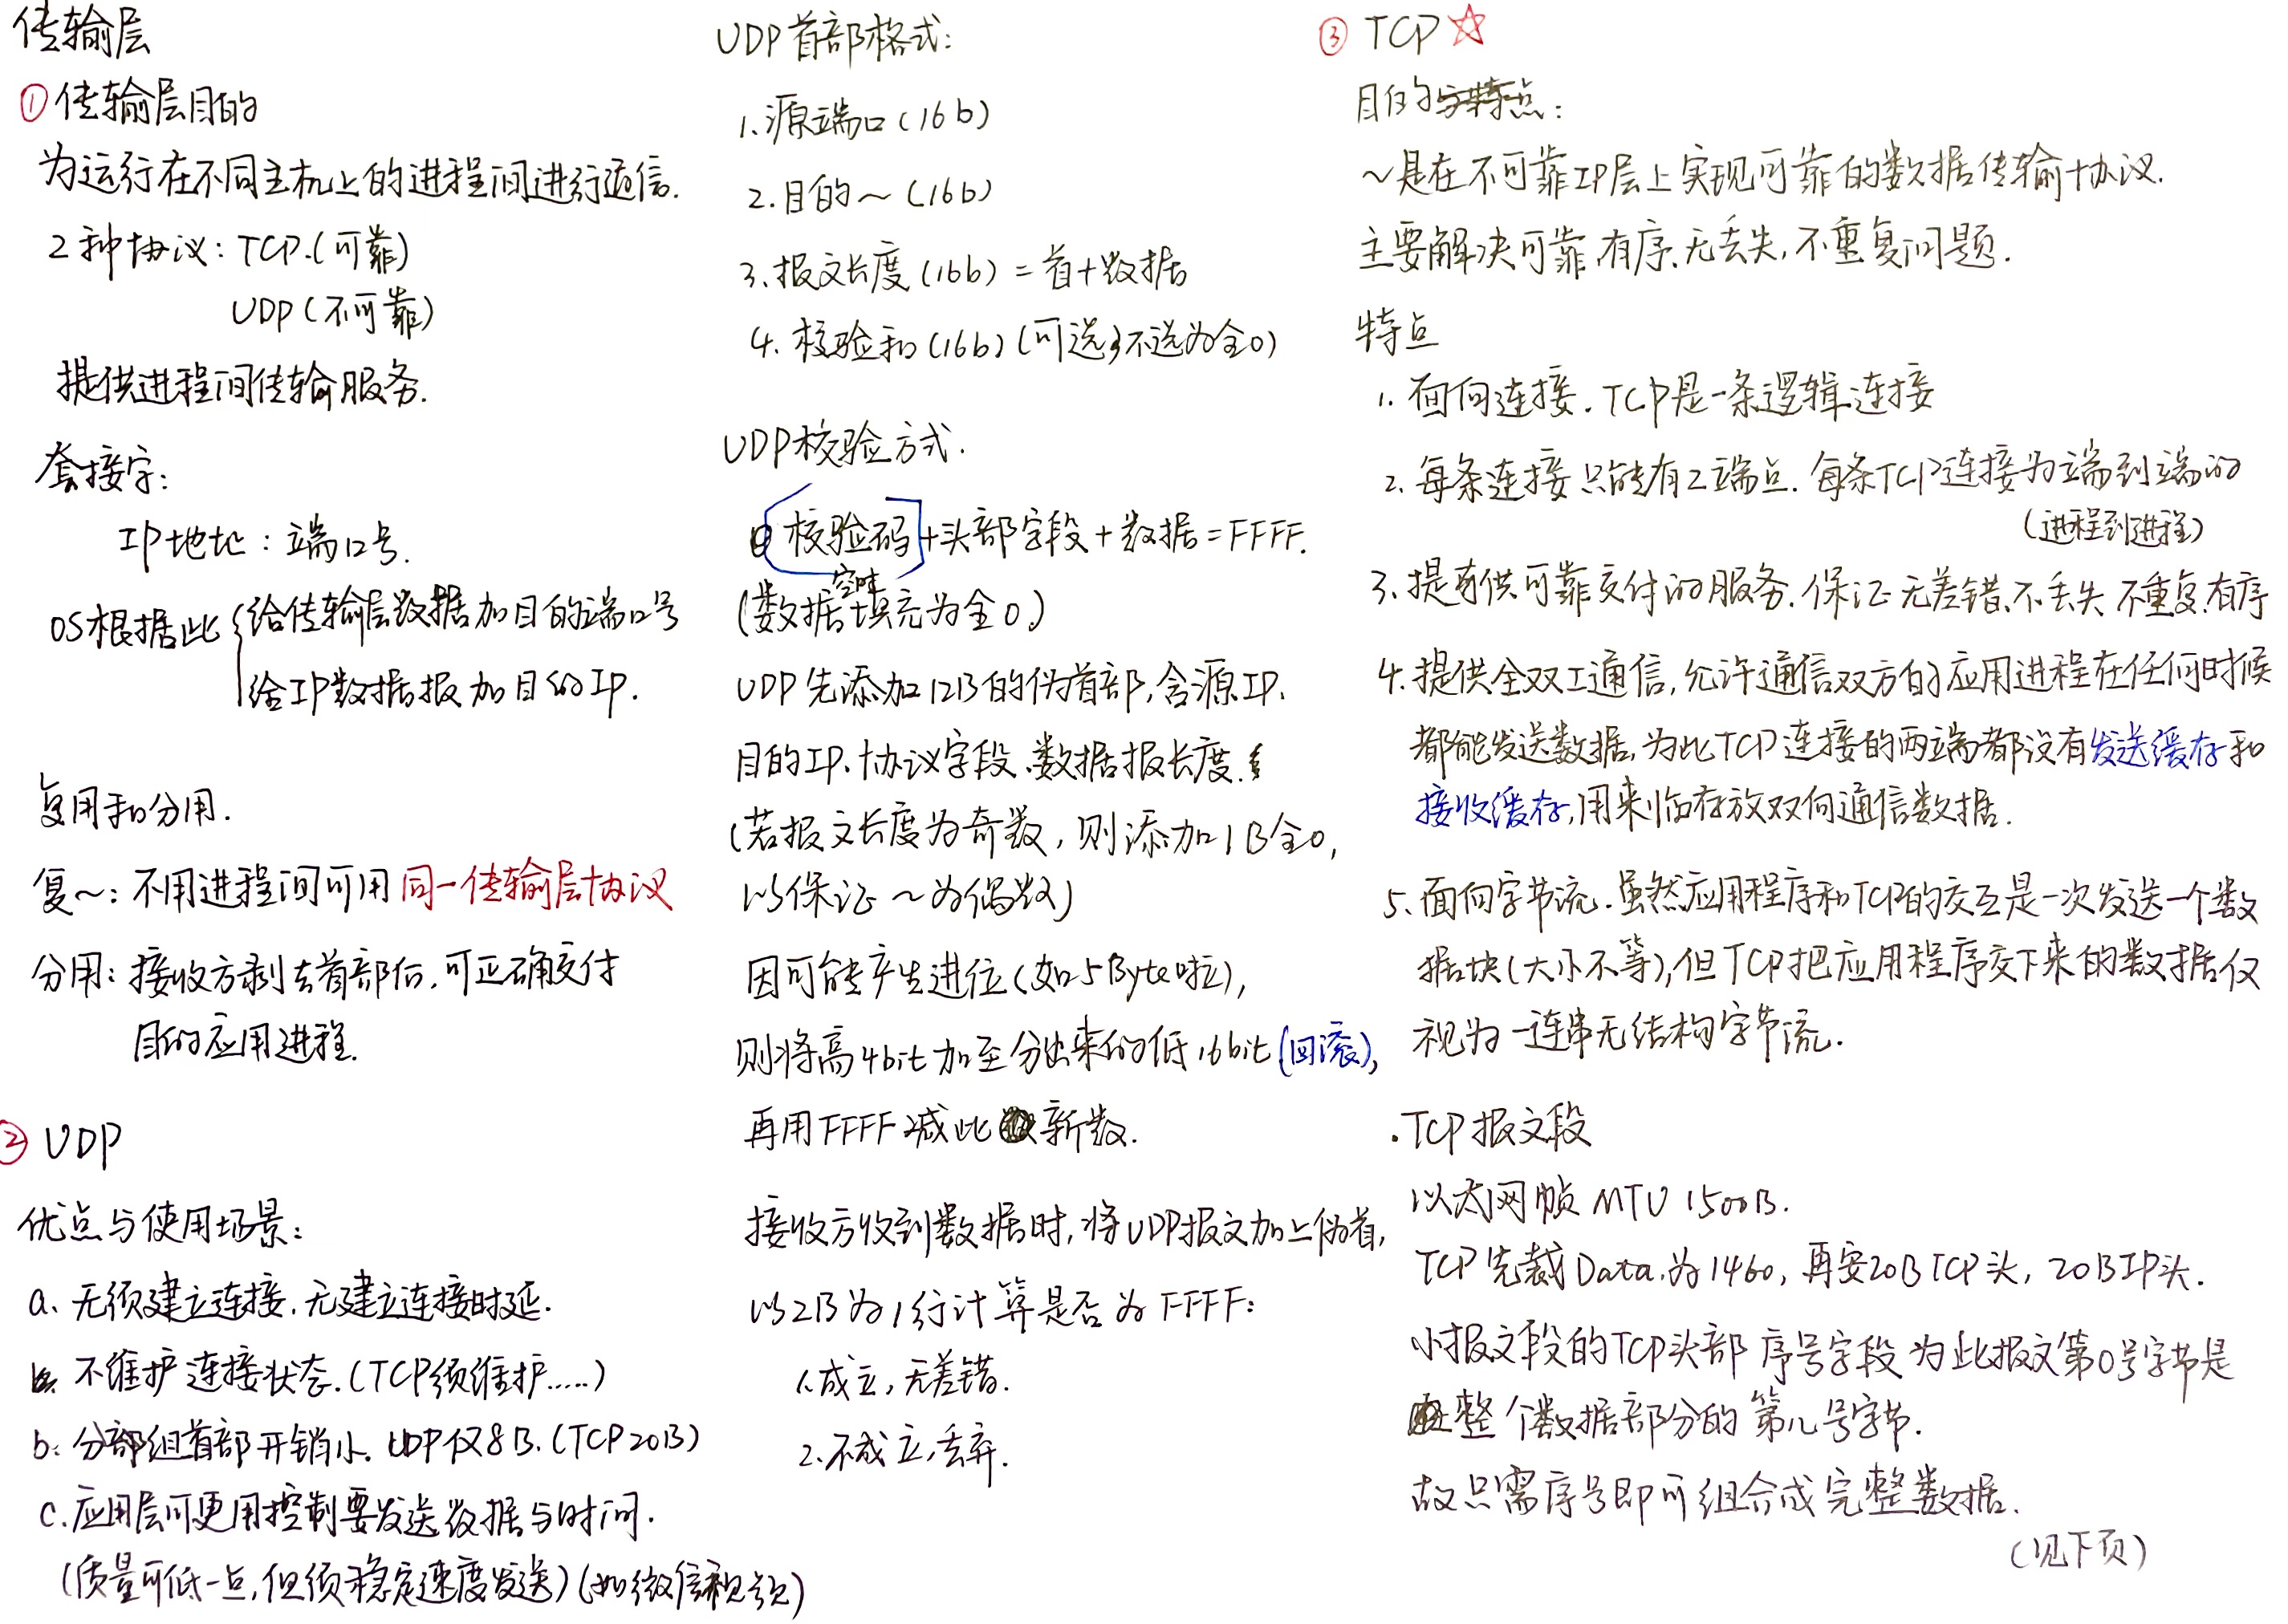 传输层
① 传输层目的
为运行在不同主机上的进程间进行通信.
2种协议: TCP.(可靠)
UDP(不可靠)
提供进程间传输服务.
套接字:
IP地址: 端口号.
OS根据此 给传输层数据加目的端口号
给IP数据报加目的IP.
复用和分用.
复～: 不用进程间可用同一传输层协议
分用: 接收方剥去首部后,可正确交付
目的应用进程.
② UDP
优点与使用场景:
a. 无须建立连接.无建立连接时延.
不维护连接状态.(TCP须维护.....)
b. 分组首部开销小. UDP仅8B.(TCP20B)
c. 应用层可更用控制要发送数据与时间.
(质量可低一点,但须稳定速度发送)(如微信视频)
UDP首部格式:
1.源端口(16b)
2.目的～(16b)
3.报文长度(16b)=首+数据
4.校验和(16b)(可选,不选为全0)
UDP校验方式.
校验码+头部字段+数据=FFFF.
(数据空时填充为全0.)
UDP先添加12B的伪首部,含源IP.
目的IP、协议字段、数据报长度.
(若报文长度为奇数,则添加1B全0,
以保证～为偶数)
因可能产生进位(如5Byte啦),
则将高4bit加至分出来的低16bit(回滚),
再用FFFF减此新数.
接收方收到数据时,将UDP报文加上伪首,
以2B为1行计算是否为FFFF:
1.成立,无差错.
2.不成立,丢弃.
③ TCP ☆
目的与特点:
～是在不可靠IP层上实现可靠的数据传输协议.
主要解决可靠.有序.无丢失,不重复问题.
特点
1. 面向连接.TCP是一条逻辑连接
2. 每条连接只能有2端点.每条TCP连接为端到端的
(进程到进程)
3. 提供可靠交付的服务.保证无差错、不丢失 不重复.有序
4. 提供全双工通信,允许通信双方的应用进程在任何时候
都能发送数据,为此TCP连接的两端都设有发送缓存和
接收缓存,用来临存放双向通信数据.
5. 面向字节流.虽然应用程序和TCP的交互是一次发送一个数
据块(大小不等),但TCP把应用程序交下来的数据仅
视为一连串无结构字节流.
.TCP报文段
以太网帧MTU 1500B.
TCP先裁Data.为1460,再安20B TCP头,20B IP头.
小报文段的TCP头部 序号字段为此报文第0号字节是
整个数据部分的第几号字节.
故只需序号即可组合成完整数据.
(见下页)